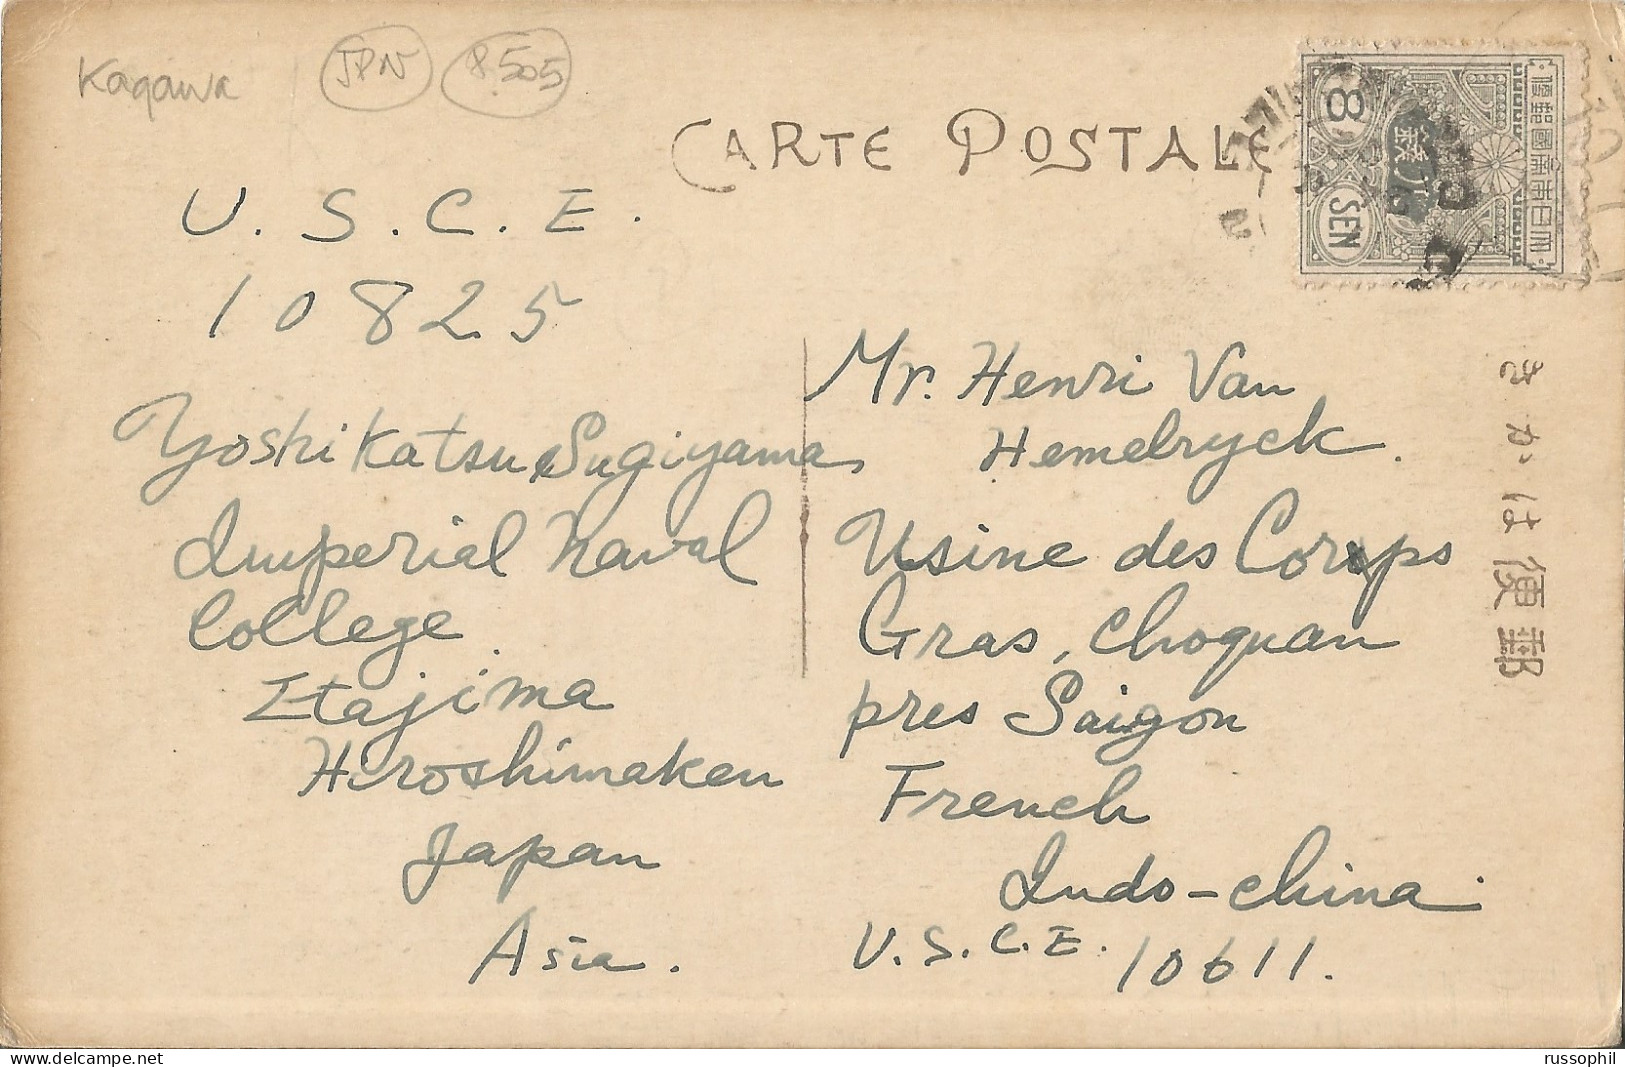 Kagawa
JPN
8505
CARTE POSTALE
8
SEN
大日本帝國郵便
U. S. C. E.
10825
Yoshikatsu Sugiyama
Imperial Naval
College.
Etajima
Hiroshimaken
Japan
Asia.
Mr. Henri Van
Hemelryck.
Usine des Corps
Gras, Choquan
pres Saigon
French
Indo-china.
U.S.C.E. 10611.
郵便はかき
delcampe.net
russophil